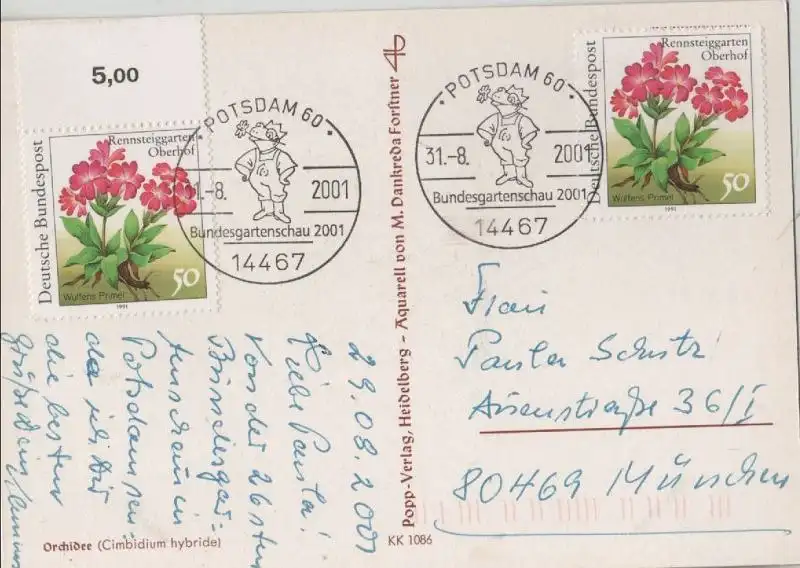 5,00
Deutsche Bundespost
Rennsteiggarten
Oberhof
Wulfens Primel
1991
50
POTSDAM 60
1.-8.
2001
Bundesgartenschau 2001
14467
POTSDAM 60
31.-8.
2001
Bundesgartenschau 2001
14467
Deutsche Bundespost
Rennsteiggarten
Oberhof
Wulfens Primel
1991
50
29.08.2001
Liebe Paula!
Von der 26sten
Bundesgar-
tenschau in
Potsdam sen-
de ich Dir
die besten
Grüße Dein
Popp-Verlag, Heidelberg – Aquarell von M. Dankreda Forstner
Frau
Paula Schutz
36/I
80469 München
Orchidee (Cimbidium hybride)
KK 1086